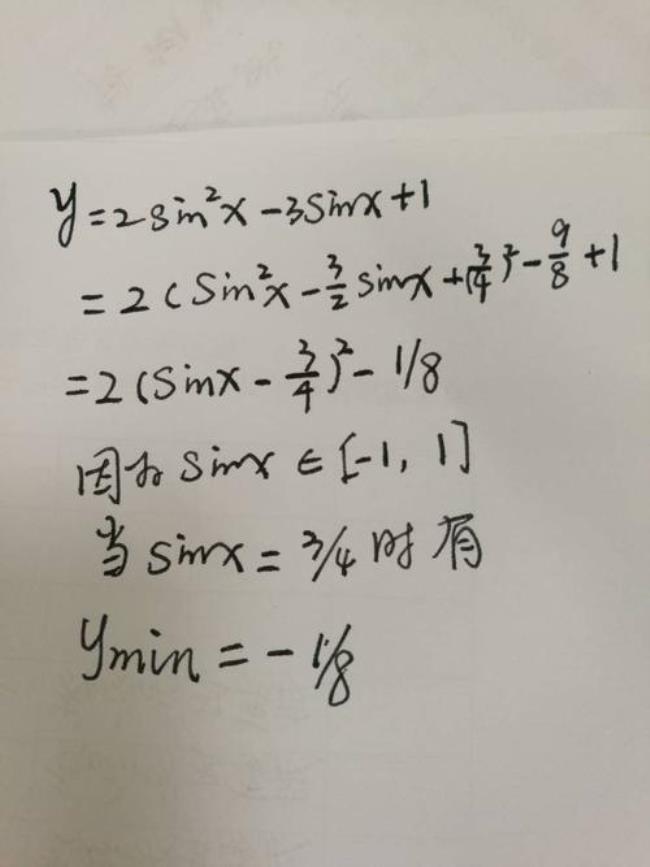 y=2sin²x-3sinx+1
=2(sin²x-3/2 sinx+(3/4)²-9/8+1
=2(sinx-3/4)²-1/8
因为sinx∈[-1,1]
当sinx=3/4时有
ymin=-1/8